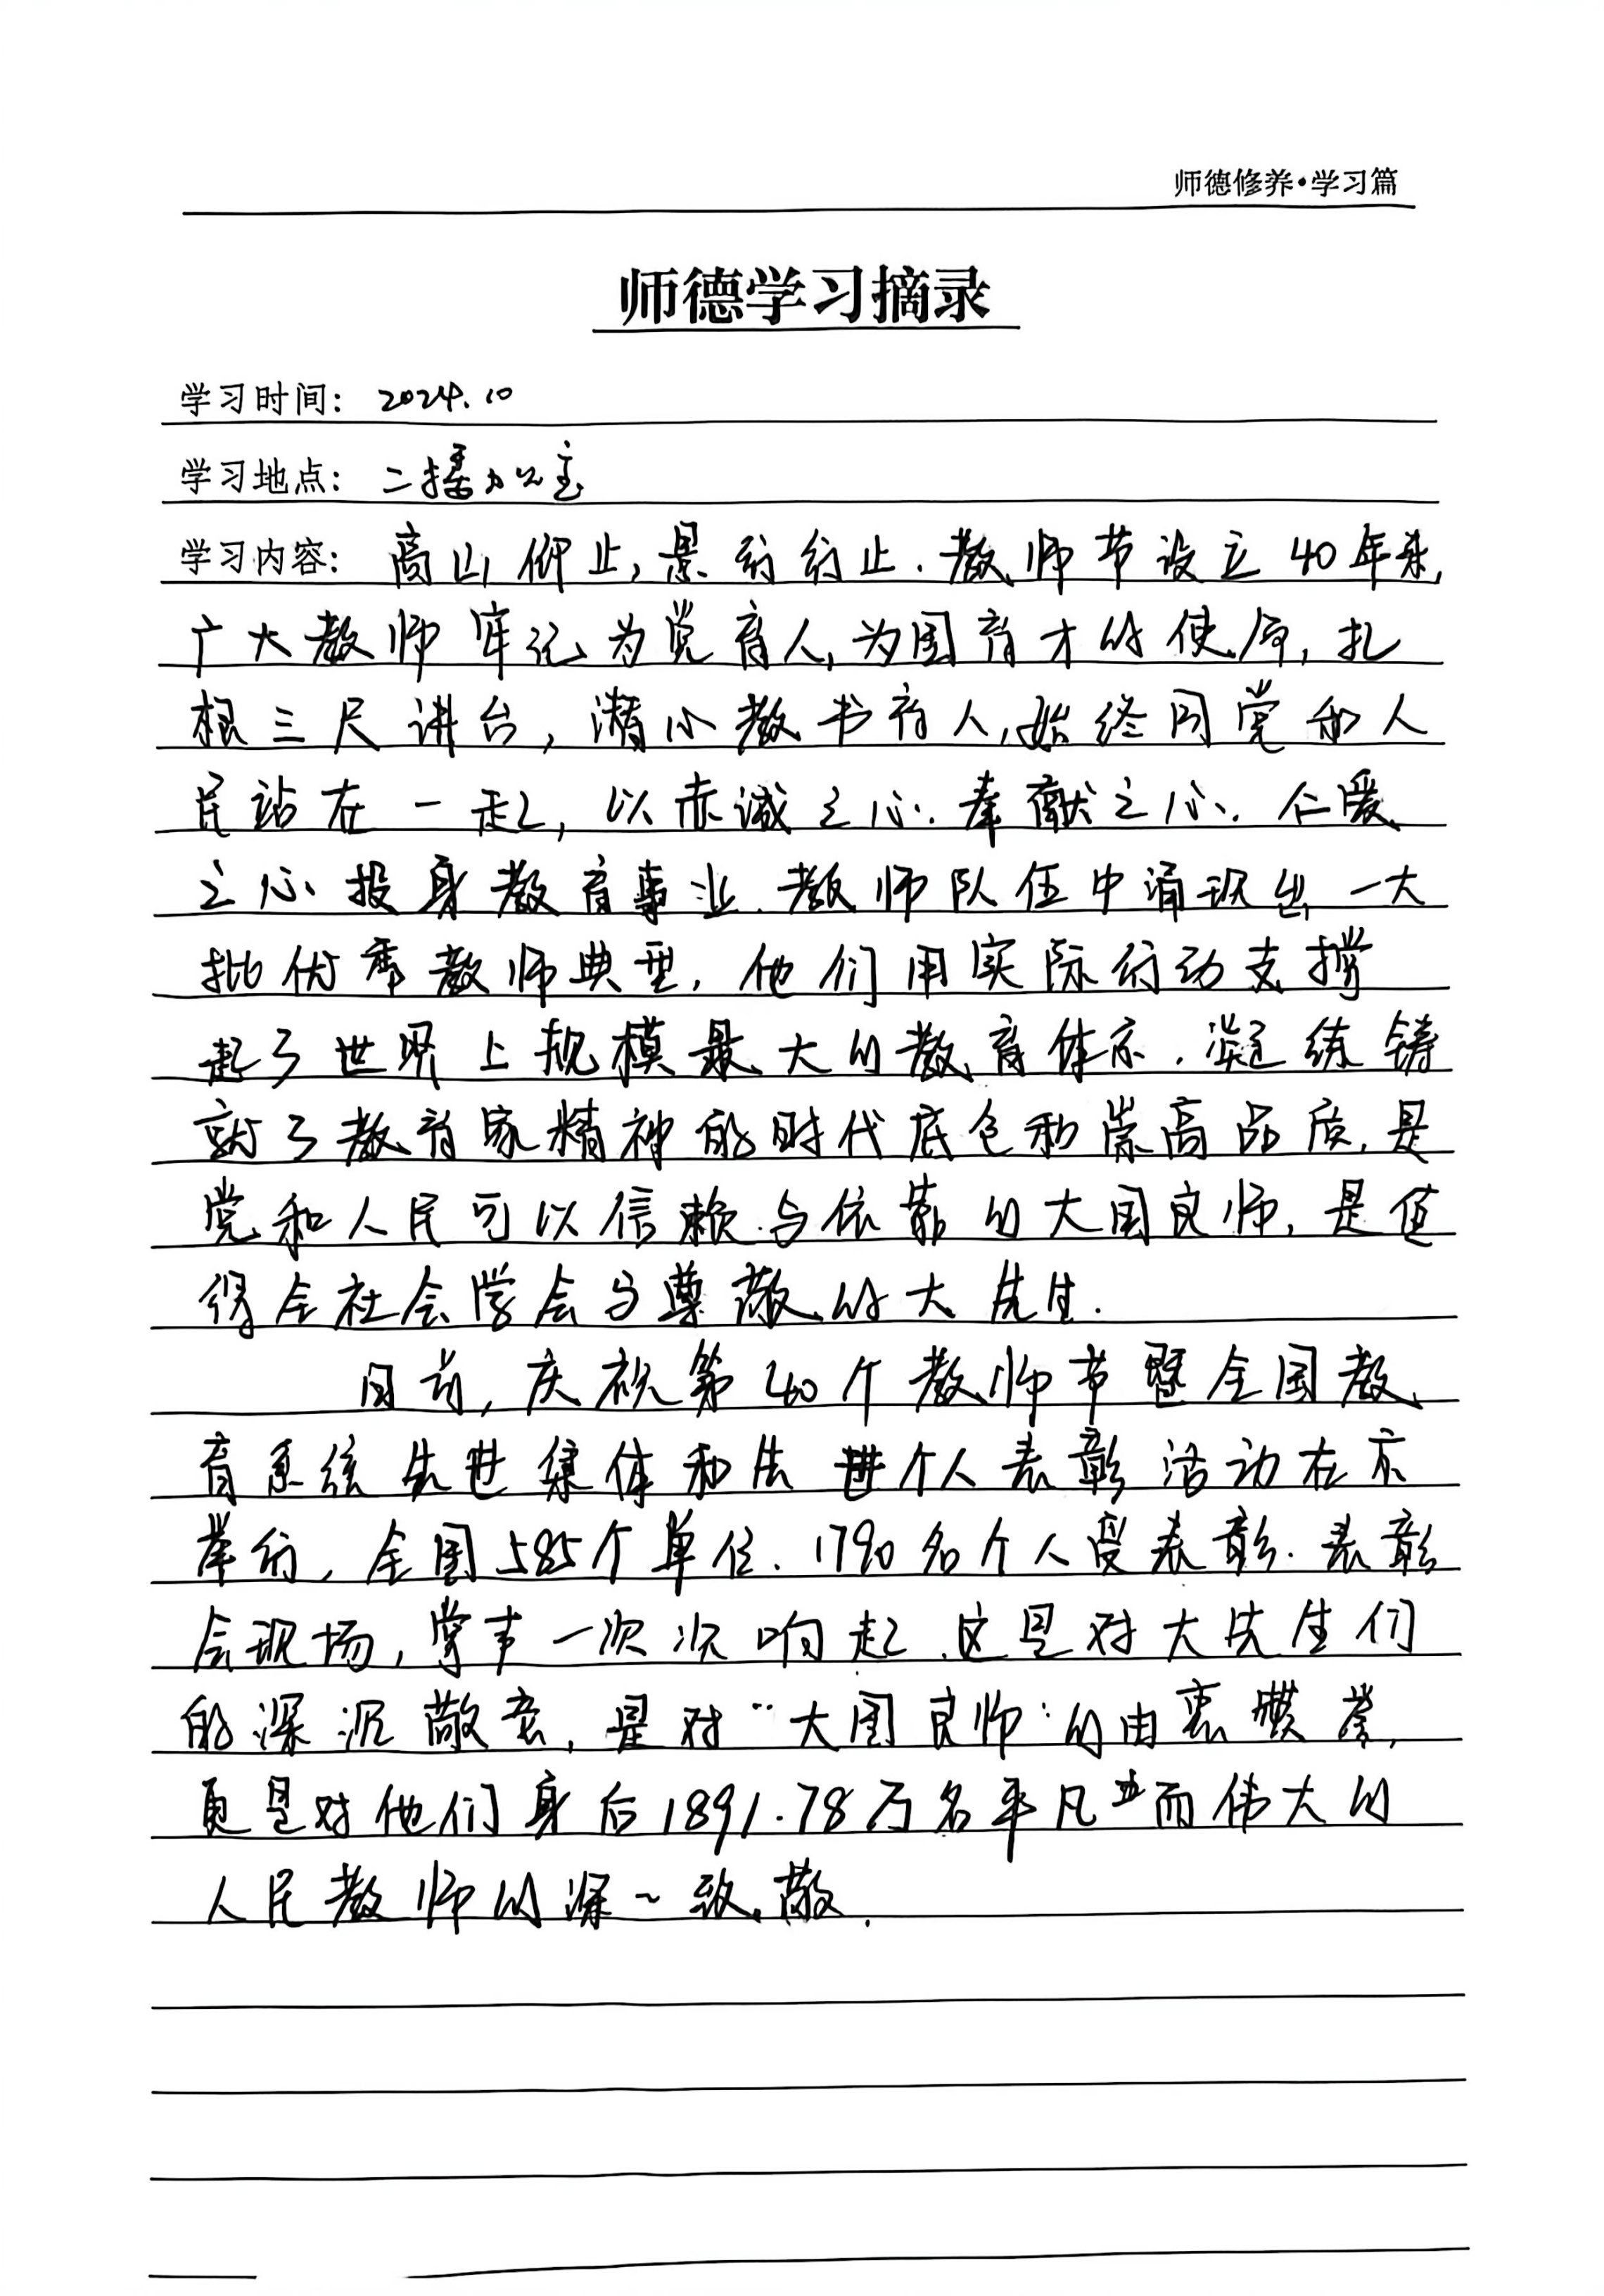 师德修养·学习篇
师德学习摘录
学习时间: 2024.10
学习地点: 二楼办公室
学习内容: 高山仰止,景行行止.教师节设立40年来,
广大教师牢记为党育人,为国育才的使命,扎
根三尺讲台,潜心教书育人,始终同党和人
民站在一起,以赤诚之心、奉献之心、仁爱
之心投身教育事业.教师队伍中涌现出一大
批优秀教师典型,他们用实际行动支撑
起了世界上规模最大的教育体系.凝练铸
就了教育家精神的时代底色和崇高品质,是
党和人民可以信赖与依靠的大国良师,是值
得全社会学会与尊敬的大先生.
日前,庆祝第40个教师节暨全国教
育系统先进集体和先进个人表彰活动在京
举行,全国585个单位、1790名个人受表彰.表彰
会现场,掌声一次次响起.这是对大先生们
的深沉敬意,是对“大国良师”的由衷赞誉,
更是对他们身后1891.78万名平凡而伟大的
人民教师的深~致敬.